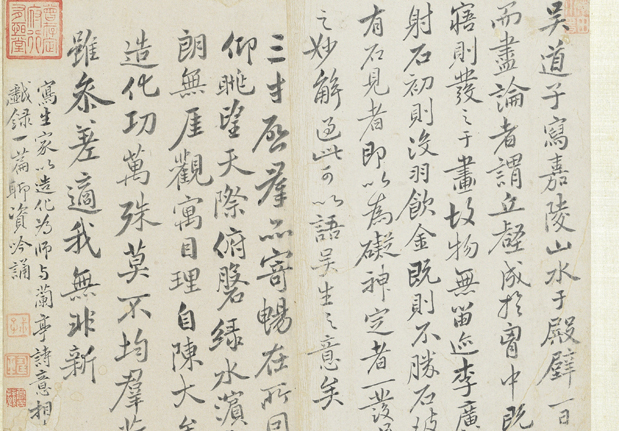 吳道子寫嘉陵山水于殿壁一日
而盡論者謂丘壑成於胷中既
寤則發之于畫故物無留迹李廣
射石初則沒羽飲金既則不勝石
有石見者即以為礙神定者一發
之妙解通此可以語吳生之意矣
三才啓羣品寄暢在所因
仰眺望天際俯磐綠水濱
朗無厓觀寓目理自陳大矣
造化功萬殊莫不均羣
雖參差適我無非新
寫生家以造化為師與蘭亭詩意相
戲錄一篇聊資吟誦